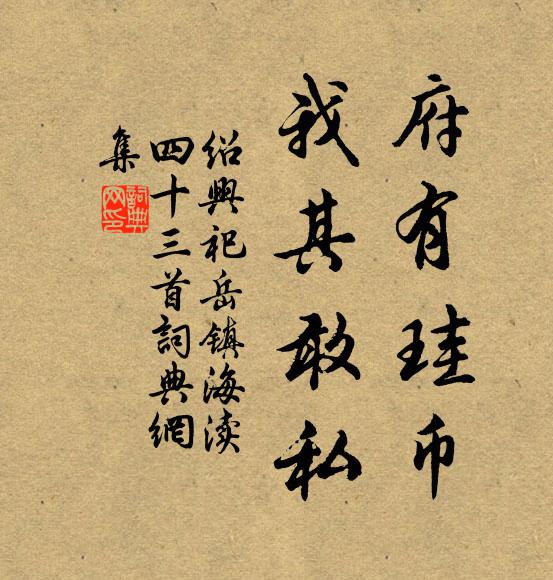 府有珪币
我其敢私
绍興祀岳镇海渎
四十三首詞典網
集
詞典网印